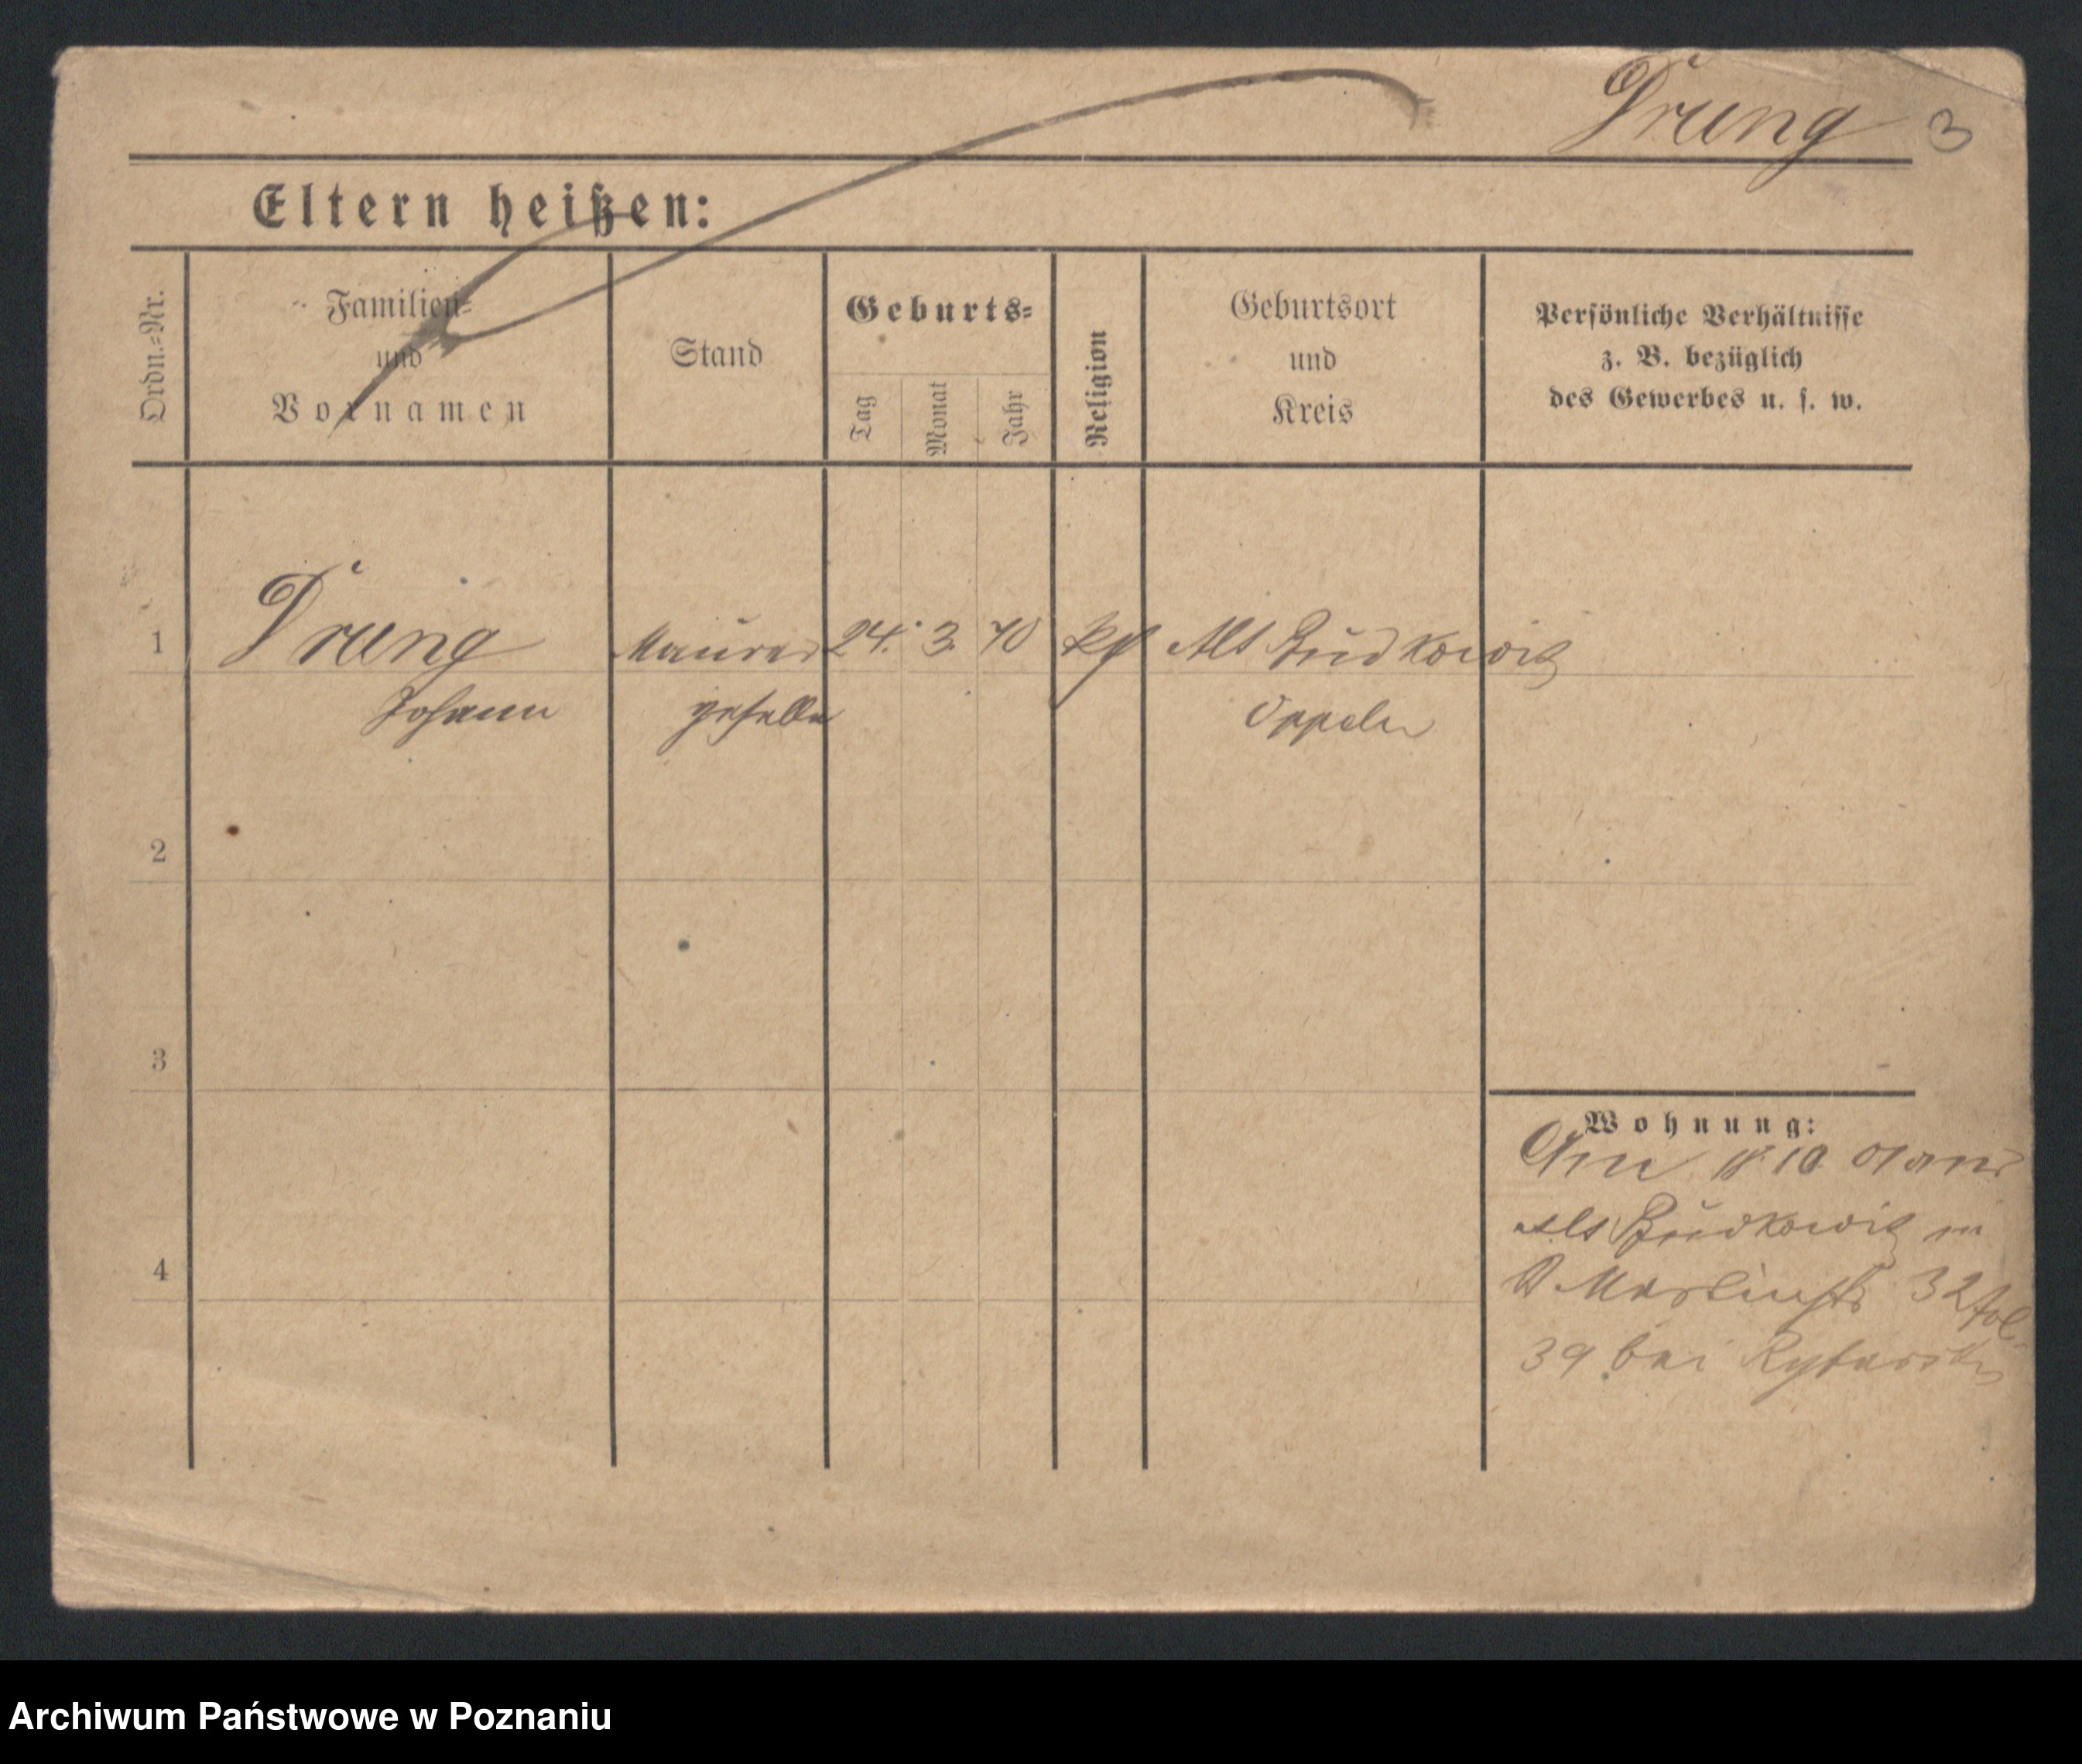 Drung 3
Eltern heißen:
Ordn.-Nr.
Familien-
und
Vornamen
Stand
Geburts-
Tag
Monat
Jahr
Religion
Geburtsort
und
Kreis
Persönliche Verhältnisse
z. B. bezüglich
des Gewerbes u. s. w.
1 Drung Maurer 24. 3. 70 kth Alt Budkowitz
Johann geselle Oppeln
2
3
4
Wohnung:
Am 18.10 01 von
Alt Budkowitz in
Martinstr 32
39 bei
Archiwum Państwowe w Poznaniu